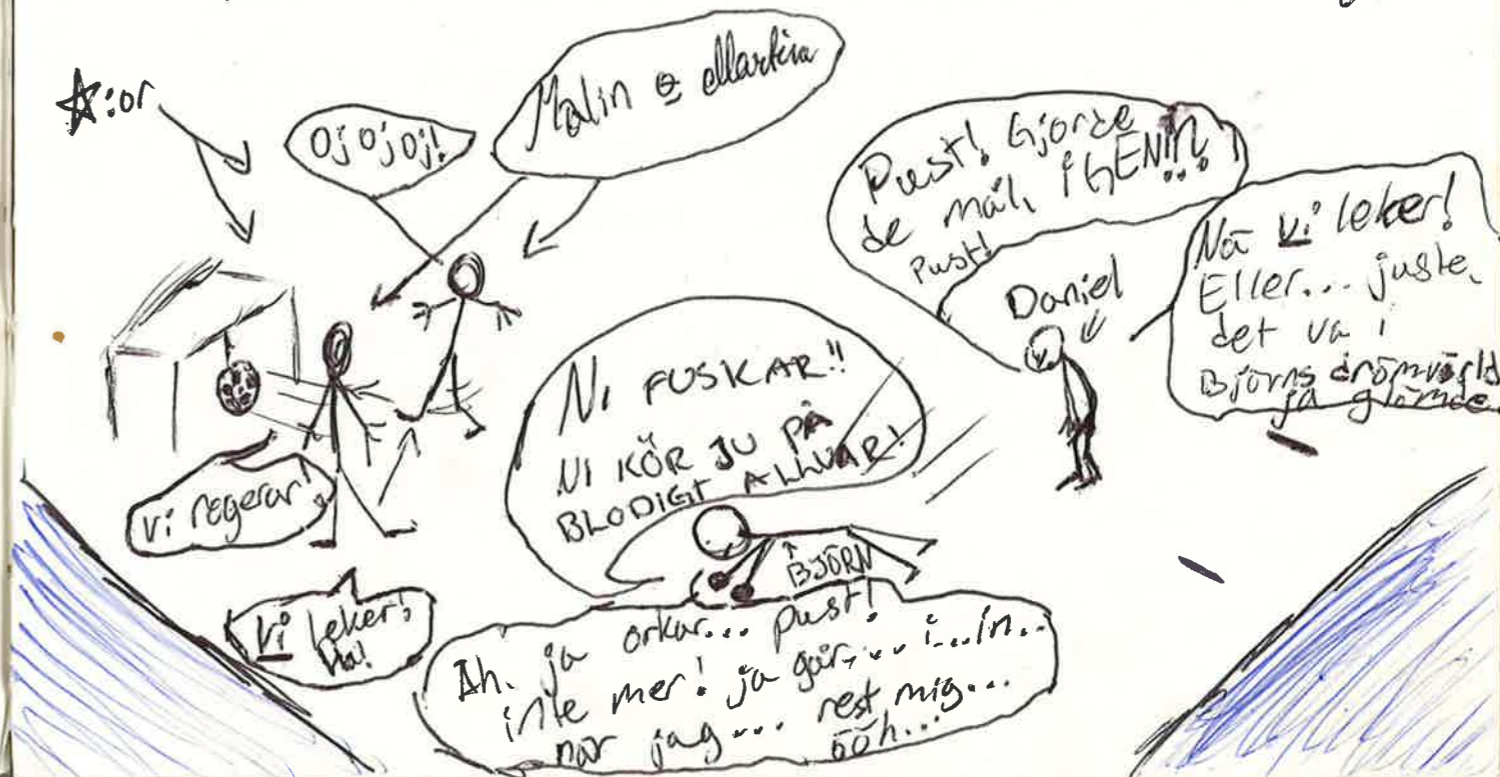 ☆:or
Oj oj oj!
Malin & Martina
Pust! Gjorde
de mål, iGEN!!!
Pust!
Daniel
Nä vi leker!
Eller... juste,
det va i
Björns drömvärld
ja glömde.
NI FUSKAR!!
NI KÖR JU PÅ
BLODIGT ALLVAR!
vi regerar!
BJÖRN
Vi leker!
Ha!
Ah, ja orkar... pust!
inte mer! ja går... i...in..
när jag... rest mig...
ööh...